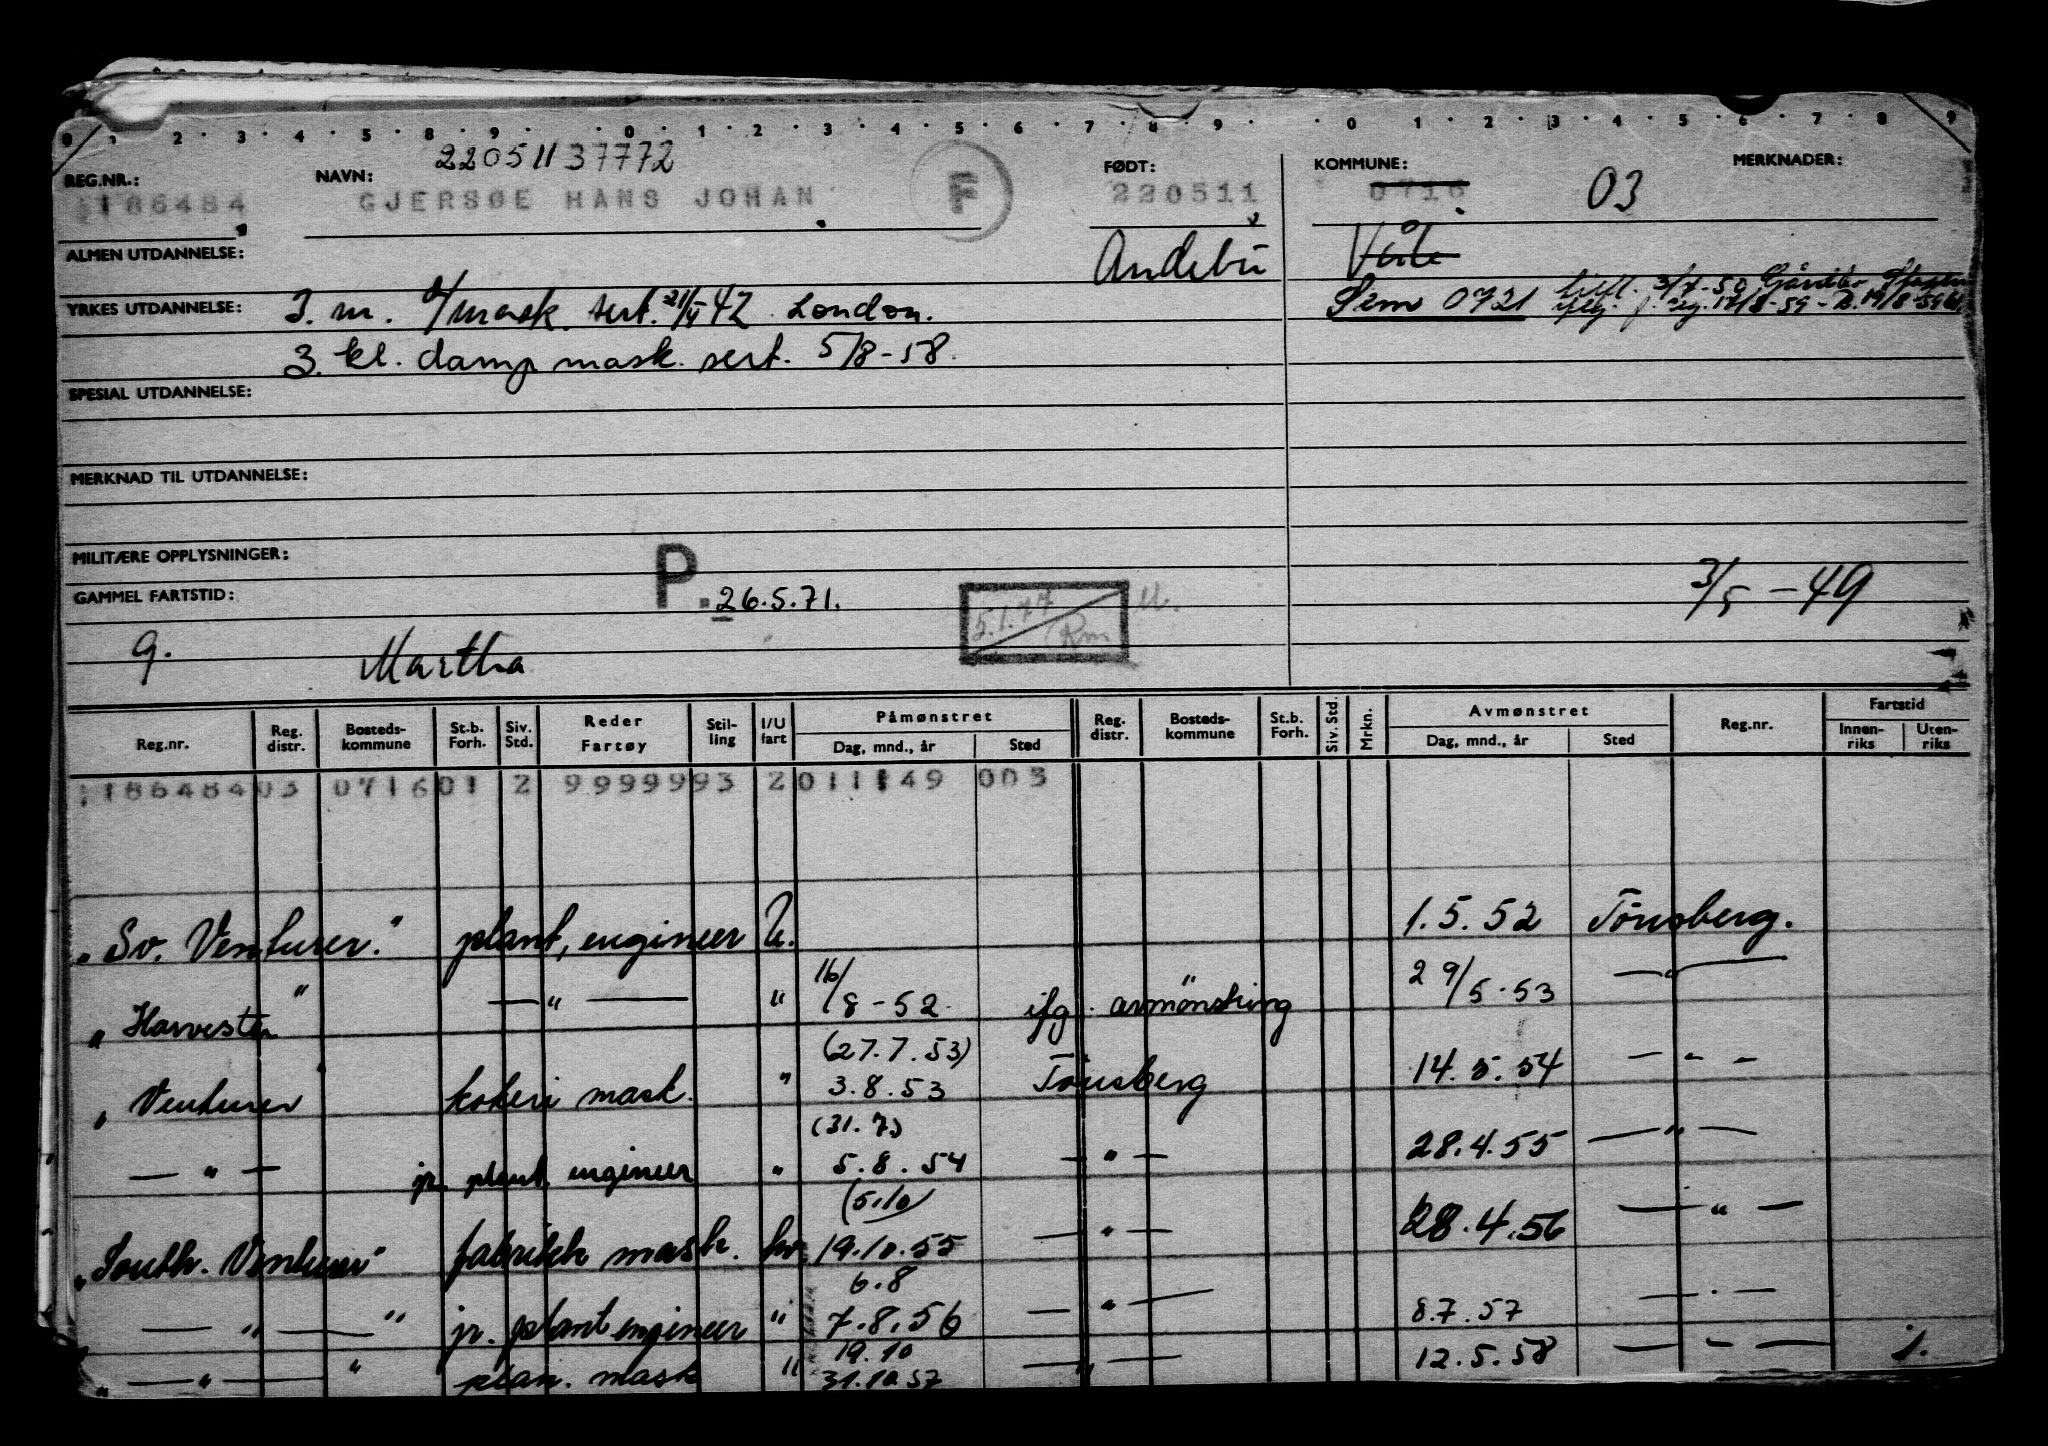 0 1 · 2 · 3 · 4 · 5 · 8 · 9 · · 0 · 1 · 2 · 3 · 4 · 5 · 6 · 7 · 8 · 9 · · 0 · 1 · 2 · 3 · 4 · 5 · 6 · 7 · 8 · 9
220511 37772
REG.NR.: NAVN: FØDT: KOMMUNE: MERKNADER:
186484 GJERSØE HANS JOHAN F 220511 0716 03
ALMEN UTDANNELSE: Andebu Våle
YRKES UTDANNELSE: 3. m. O/mask. sert. 21/5 42 London. Sem 0721
3. kl. damp mask. sert. 5/8-58.
SPESIAL UTDANNELSE:
MERKNAD TIL UTDANNELSE:
MILITÆRE OPPLYSNINGER:
P. 26.5.71. 3/5 - 49
GAMMEL FARTSTID: 5.1.77 Rm
g. Martha
Reg.nr. Reg. distr. Bosteds- kommune St.b. Forh. Siv. Std. Reder Fartøy Stil- ling I/U fart Påmønstret Dag, mnd., år Sted Reg. distr. Bosteds- kommune St.b. Forh. Siv. Std. Mrkn. Avmønstret Dag, mnd., år Sted Reg.nr. Fartstid Innen- riks Uten- riks
186484 03 0716 01 2 99999 93 2 011149 003
"Sv. Venturer." plant, engineer U. 1.5.52 Tönsberg.
"Harvester" — " — " 16/8-52 ifg. avmönstring 29/5.53 — " —
(27.7.53)
" Venturer kokeri mask. " 3.8.53 Tönsberg 14.5.54 — " —
(31.7)
— " — jr. plant. engineer " 5.8.54 — " — 28.4.55 — " —
(5.10)
"South. Venturer" fabrikk mask. hv. 19.10.55 — " — 28.4.56 — " —
6.8
— " — " jr. plant engineer " 7.8.56 — " — 8.7.57 — " —
19.10
" — " — " plan. mask " 31.10.57 — " — 12.5.58 — " — 1.